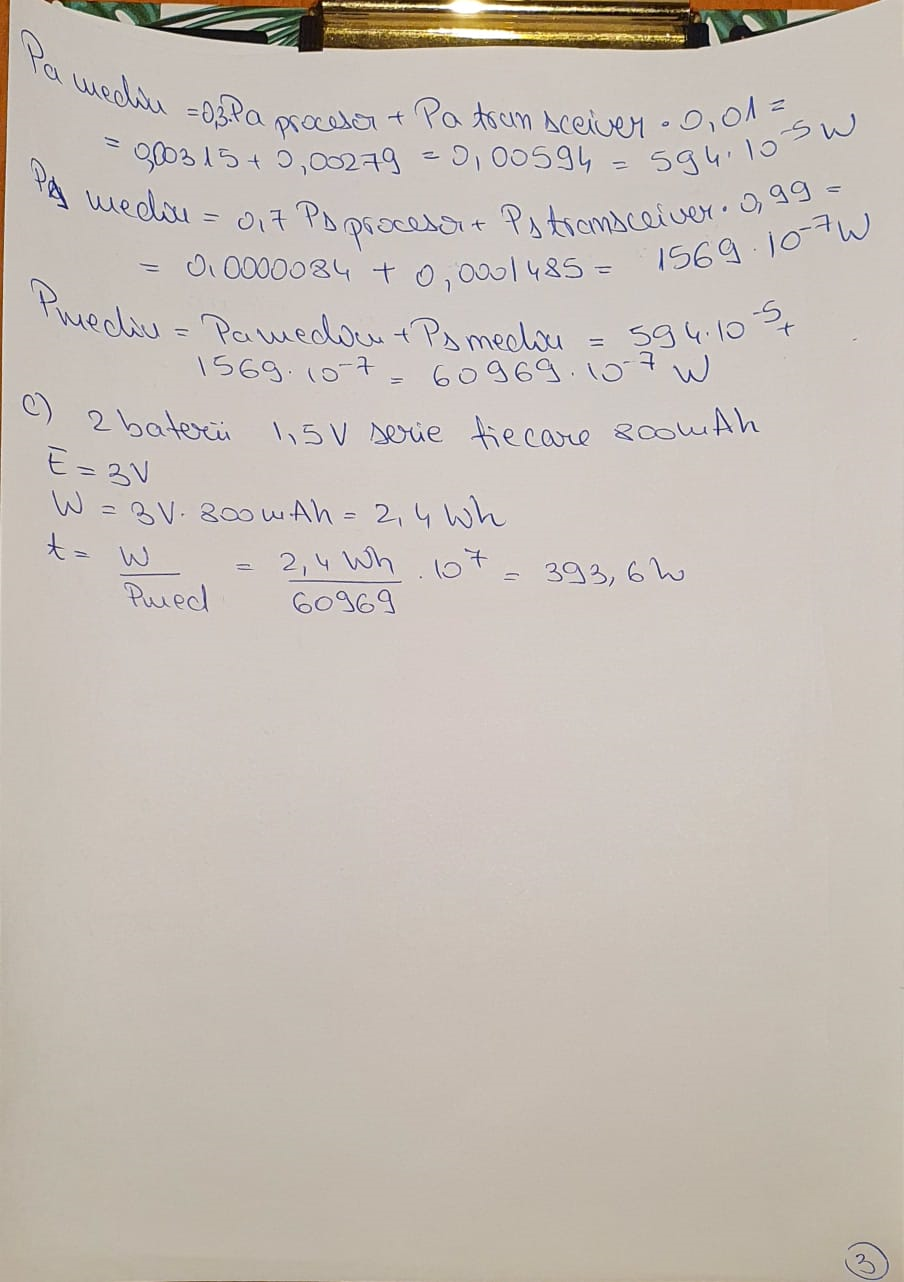 Pa mediu = 0,3·Pa procesor + Pa transceiver · 0,01 =
= 0,00315 + 0,00279 = 0,00594 = 594·10⁻⁵ W
Ps mediu = 0,7 Ps procesor + Ps transceiver · 0,99 =
= 0,0000084 + 0,0001485 = 1569·10⁻⁷ W
Pmediu = Pa mediu + Ps mediu = 594·10⁻⁵ +
1569·10⁻⁷ = 60969·10⁻⁷ W
c) 2 baterii 1,5V serie fiecare 800mAh
E = 3V
W = 3V · 800mAh = 2,4 Wh
t = W / Pmed = 2,4 Wh / 60969 · 10⁷ = 393,6 h
3